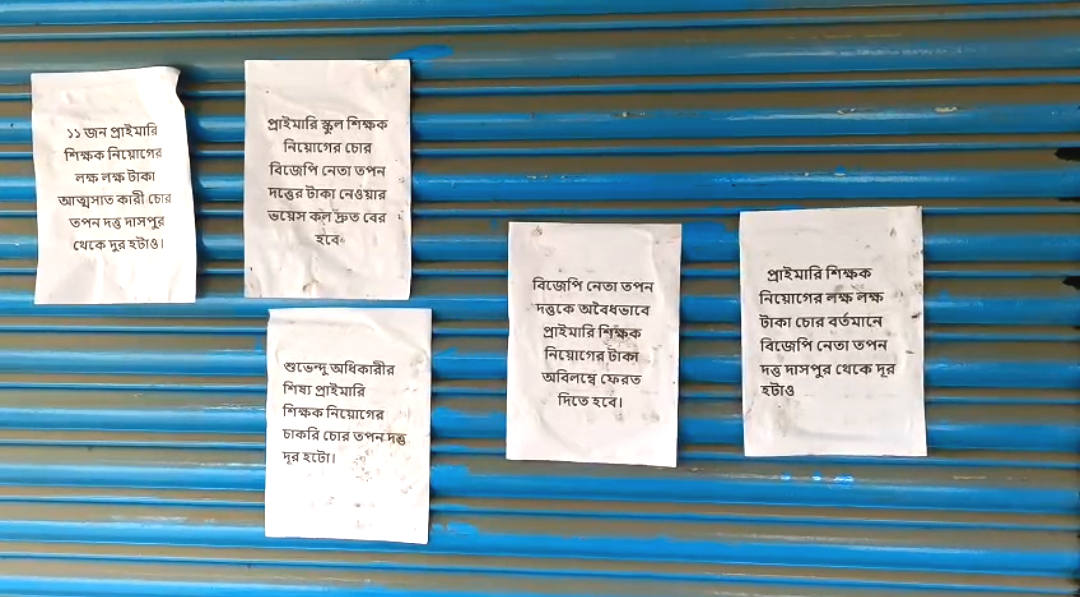 ১১ জন প্রাইমারি
শিক্ষক নিয়োগের
লক্ষ লক্ষ টাকা
আত্মসাত কারী চোর
তপন দত্ত দাসপুর
থেকে দূর হটাও।
প্রাইমারি স্কুল শিক্ষক
নিয়োগের চোর
বিজেপি নেতা তপন
দত্তের টাকা নেওয়ার
ভয়েস কল দ্রুত বের
হবে।
শুভেন্দু অধিকারীর
শিষ্য প্রাইমারি
শিক্ষক নিয়োগের
চাকরি চোর তপন দত্ত
দূর হটো।
বিজেপি নেতা তপন
দত্তকে অবৈধভাবে
প্রাইমারি শিক্ষক
নিয়োগের টাকা
অবিলম্বে ফেরত
দিতে হবে।
প্রাইমারি শিক্ষক
নিয়োগের লক্ষ লক্ষ
টাকা চোর বর্তমানে
বিজেপি নেতা তপন
দত্ত দাসপুর থেকে দূর
হটাও